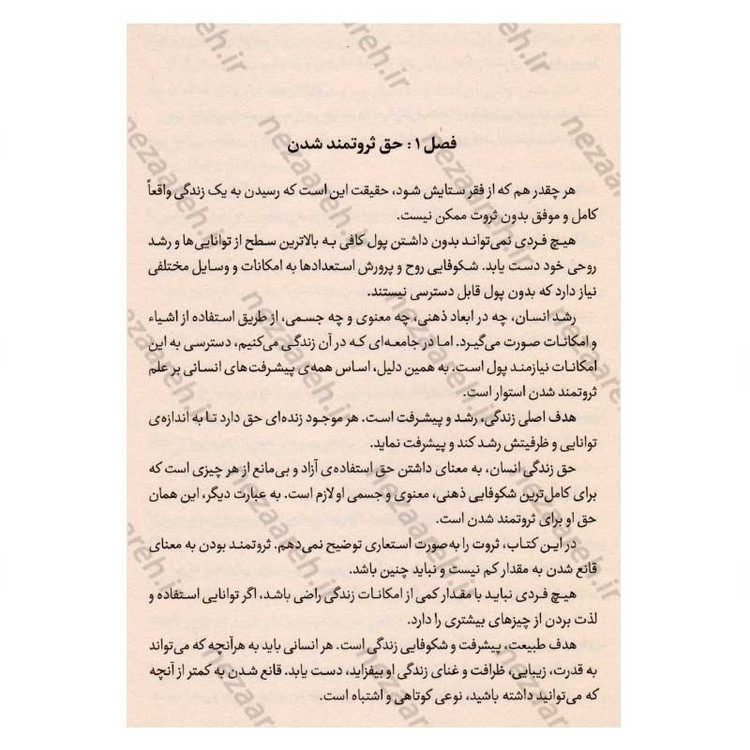 فصل ۱: حق ثروتمند شدن
هر چقدر هم که از فقر ستایش شود، حقیقت این است که رسیدن به یک زندگی واقعاً
کامل و موفق بدون ثروت ممکن نیست.
هیچ فردی نمی‌تواند بدون داشتن پول کافی به بالاترین سطح از توانایی‌ها و رشد
روحی خود دست یابد. شکوفایی روح و پرورش استعدادها به امکانات و وسایل مختلفی
نیاز دارد که بدون پول قابل دسترسی نیستند.
رشد انسان، چه در ابعاد ذهنی، چه معنوی و چه جسمی، از طریق استفاده از اشیاء
و امکانات صورت می‌گیرد. اما در جامعه‌ای که در آن زندگی می‌کنیم، دسترسی به این
امکانات نیازمند پول است. به همین دلیل، اساس همه‌ی پیشرفت‌های انسانی بر علم
ثروتمند شدن استوار است.
هدف اصلی زندگی، رشد و پیشرفت است. هر موجود زنده‌ای حق دارد تا به اندازه‌ی
توانایی و ظرفیتش رشد کند و پیشرفت نماید.
حق زندگی انسان، به معنای داشتن حق استفاده‌ی آزاد و بی‌مانع از هر چیزی است که
برای کامل‌ترین شکوفایی ذهنی، معنوی و جسمی او لازم است. به عبارت دیگر، این همان
حق او برای ثروتمند شدن است.
در این کتاب، ثروت را به‌صورت استعاری توضیح نمی‌دهم. ثروتمند بودن به معنای
قانع شدن به مقدار کم نیست و نباید چنین باشد.
هیچ فردی نباید با مقدار کمی از امکانات زندگی راضی باشد، اگر توانایی استفاده و
لذت بردن از چیزهای بیشتری را دارد.
هدف طبیعت، پیشرفت و شکوفایی زندگی است. هر انسانی باید به هرآنچه که می‌تواند
به قدرت، زیبایی، ظرافت و غنای زندگی او بیفزاید، دست یابد. قانع شدن به کمتر از آنچه
که می‌توانید داشته باشید، نوعی کوتاهی و اشتباه است.
nezaareh.ir